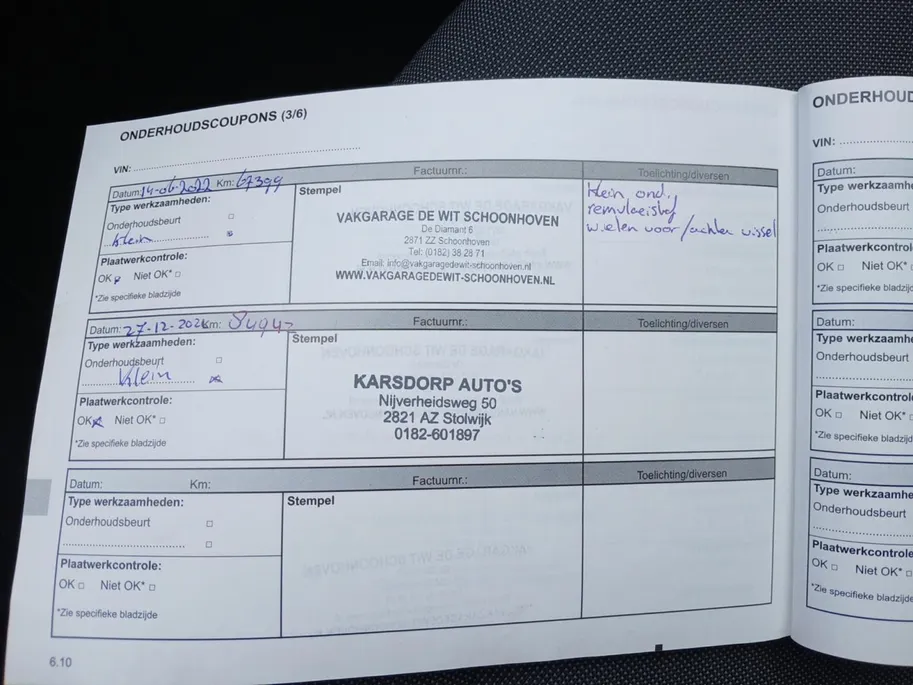 ONDERHOUDSCOUPONS (3/6)
VIN:
Datum: 14-06-2022 Km: 67399
Factuurnr.:
Toelichting/diversen
Type werkzaamheden:
Onderhoudsbeurt
Klein
Plaatwerkcontrole:
OK Niet OK*
*Zie specifieke bladzijde
Stempel
VAKGARAGE DE WIT SCHOONHOVEN
De Diamant 6
2871 ZZ Schoonhoven
Tel: (0182) 38 28 71
Email: info@vakgaragedewit-schoonhoven.nl
WWW.VAKGARAGEDEWIT-SCHOONHOVEN.NL
Klein ond.
remvloeistof
wielen voor/achter wissel
Datum: 27-12-202 Km: 84947
Factuurnr.:
Toelichting/diversen
Type werkzaamheden:
Onderhoudsbeurt
Klein
Plaatwerkcontrole:
OK Niet OK*
*Zie specifieke bladzijde
Stempel
KARSDORP AUTO'S
Nijverheidsweg 50
2821 AZ Stolwijk
0182-601897
Datum: Km:
Factuurnr.:
Toelichting/diversen
Type werkzaamheden:
Onderhoudsbeurt
Plaatwerkcontrole:
OK Niet OK*
*Zie specifieke bladzijde
Stempel
6.10
ONDERHOUD
VIN:
Datum:
Type werkzaamhe
Onderhoudsbeurt
Plaatwerkcontrole
OK Niet OK*
*Zie specifieke bladzijde
Datum:
Type werkzaamhe
Onderhoudsbeurt
Plaatwerkcontrole
OK Niet OK*
*Zie specifieke bladzijde
Datum:
Type werkzaamhe
Onderhoudsbeurt
Plaatwerkcontrole
OK Niet OK*
*Zie specifieke bladzijde